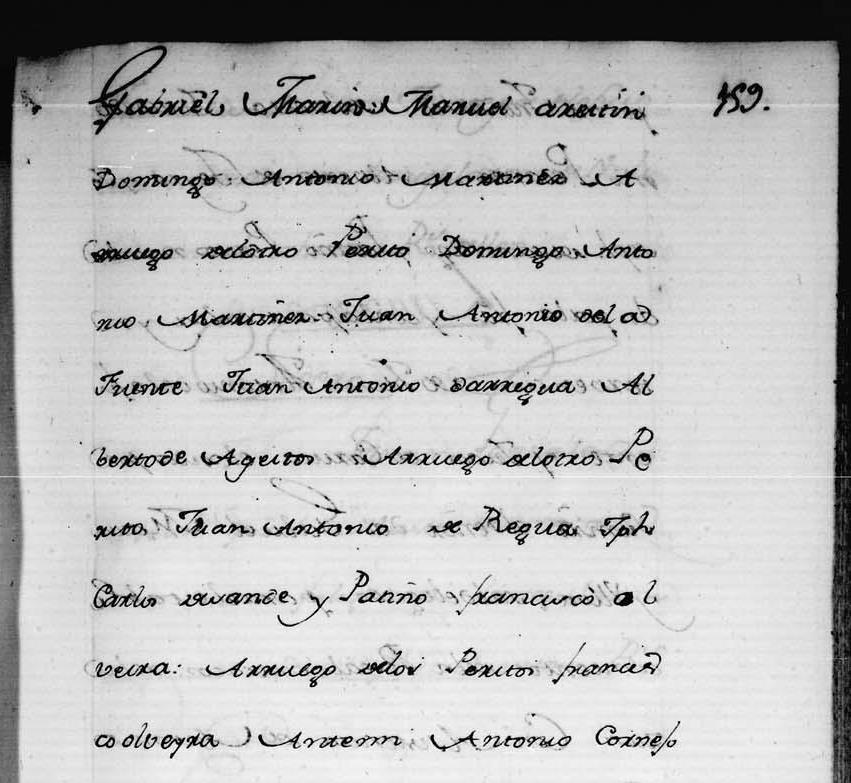 Gabriel Marino Manuel areitin 459.
Domingo Antonio Martinez A
rruego delotro Perito Domingo Anto
nio Martinez Juan Antonio dela
Fuente Juan Antonio darregua Al
bertode Ageitos Arruego delotro Pe
rito Juan Antonio de Regua Jph
Carlos desande y Patiño francisco ol
veira: Arruego delos Peritos francis
co olveyra Antemi Antonio Cornejo